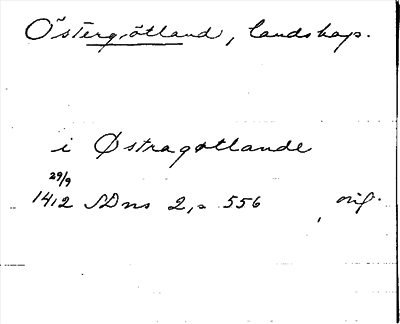 Östergötland, landskap.
i Østragøtlande
29/9
1412 SDns 2, s 556 orig.